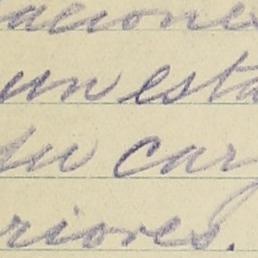 aciones
un esta
su carg
riores.